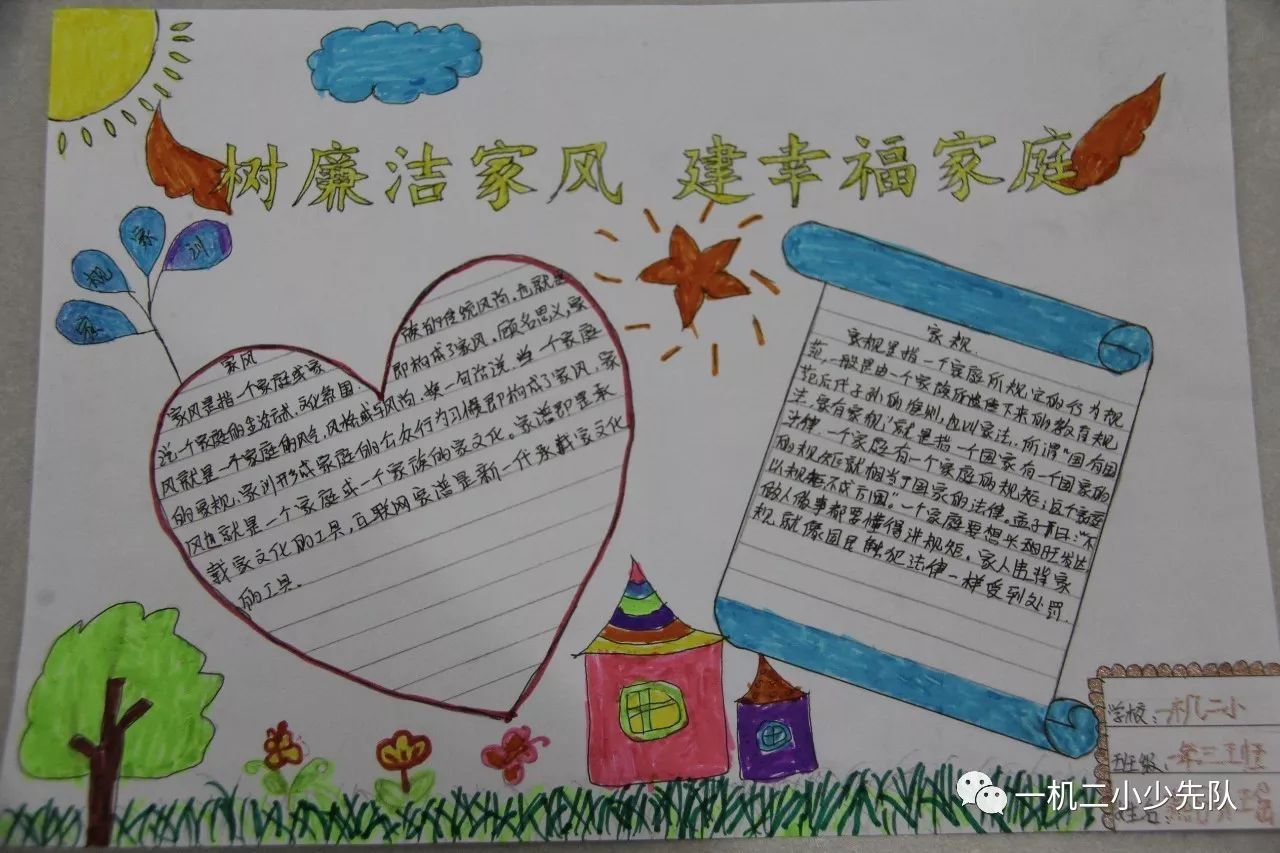 树廉洁家风 建幸福家庭
家规家训
家风
家风是指一个家庭或家
族的传统风尚。也就是
说一个家庭的生活方式、文化氛围
即构成了家风。顾名思义,家
风就是一个家庭的风气、风格或与风尚。换一句话说,当一个家庭
的家规、家训形成家庭的公众行为习惯即构成了家风,家
风也就是一个家庭或一个家族的家文化。家谱即是承
载家文化的工具,互联网家谱是新一代承载家文化
的工具。
家规
家规是指一个家庭所规定的行为规
范,一般是由一个家族所遗传下来的教育规
范后代子孙的准则,也叫家法。所谓“国有国
法,家有家规”就是指一个国家有一个国家的
法律,一个家庭有一个家庭的规矩;这个家庭
的规矩就相当于国家的法律。孟子曰:“不
以规矩不成方圆”。一个家庭要想兴旺发达
做人做事都要懂得讲规矩。家人违背家
规,就像国民触犯法律一样受到处罚。
学校:一机二小
班级
姓名:
一机二小少先队